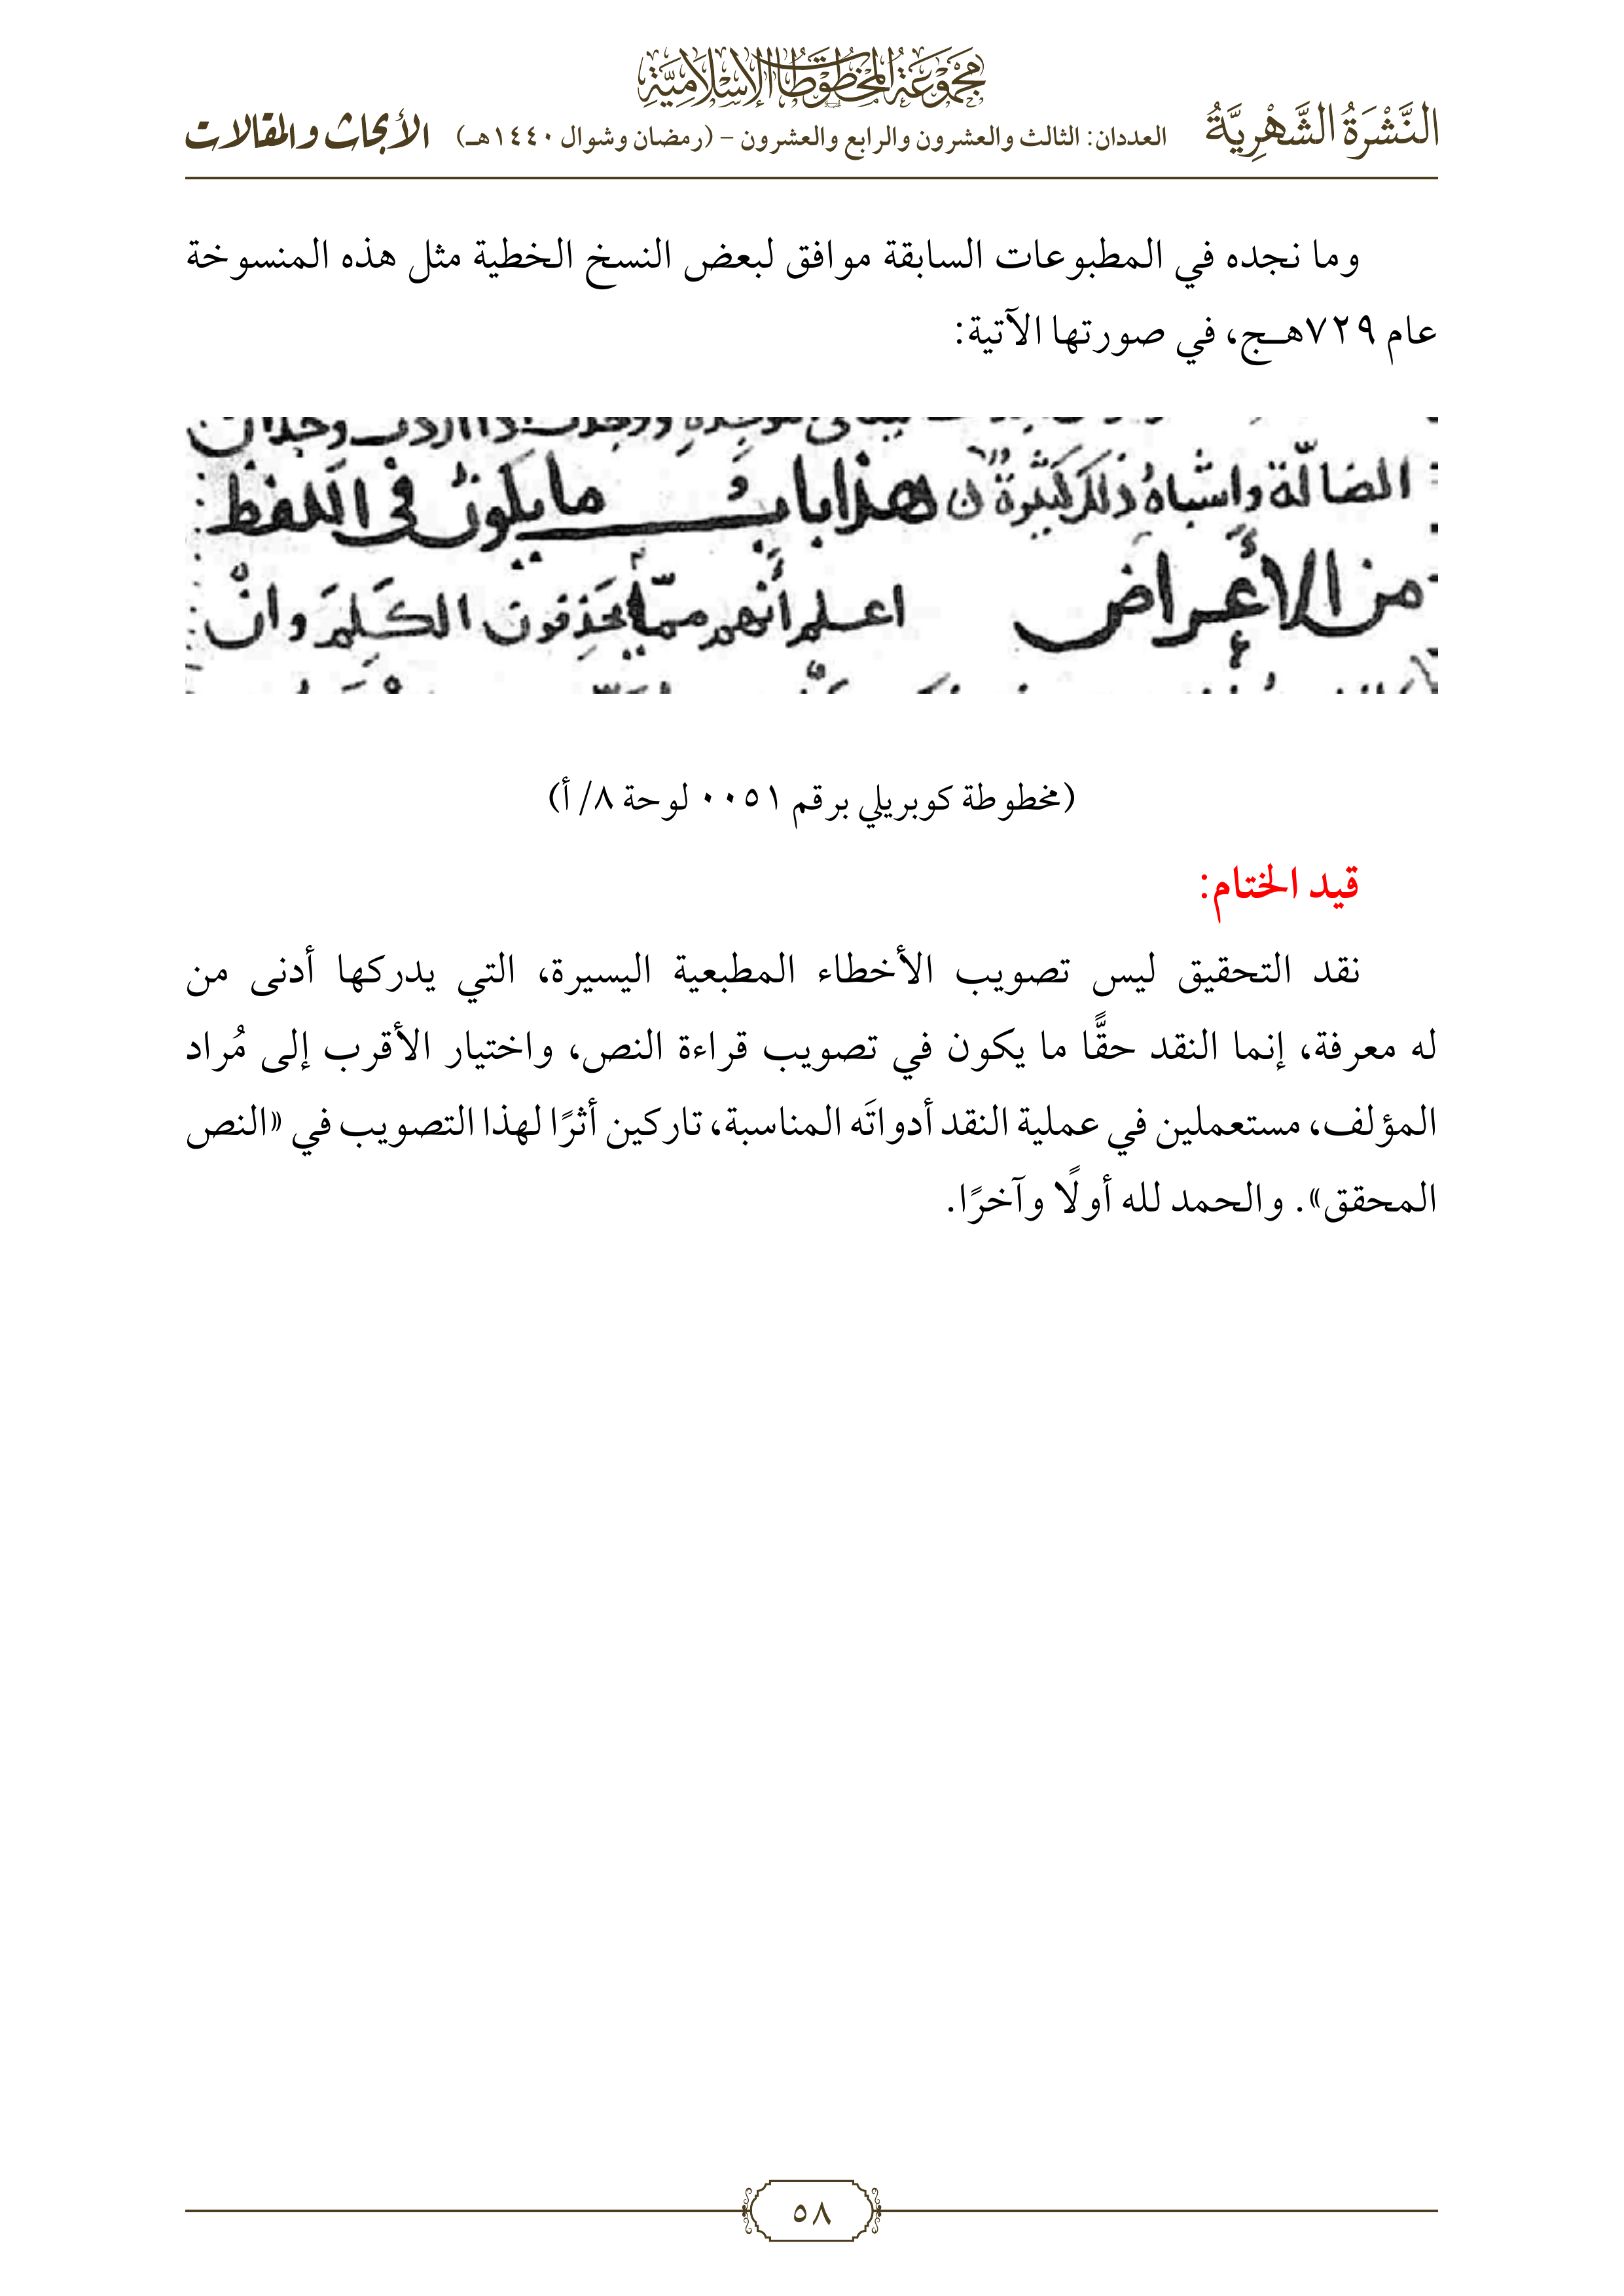 مَجْمُوعَةُ المَخْطُوطَاتِ الإِسْلَامِيَّةِ
النَّشْرَةُ الشَّهْرِيَّةُ العددان: الثالث والعشرون والرابع والعشرون – (رمضان وشوال ١٤٤٠هـ) الأبحاث والمقالات
وما نجده في المطبوعات السابقة موافق لبعض النسخ الخطية مثل هذه المنسوخة
عام ٧٢٩هـج، في صورتها الآتية:
الضالّة واشباهُ ذلك كثيرةٌ هذا بابُ ما يكون في اللفظ
من الأعراض اعلم أنهم ممّا يحذفون الكلم وانْ
(مخطوطة كوبريلي برقم ٠٠٥١ لوحة ٨/ أ)
قيد الختام:
نقد التحقيق ليس تصويب الأخطاء المطبعية اليسيرة، التي يدركها أدنى من
له معرفة، إنما النقد حقًّا ما يكون في تصويب قراءة النص، واختيار الأقرب إلى مُراد
المؤلف، مستعملين في عملية النقد أدواتَه المناسبة، تاركين أثرًا لهذا التصويب في «النص
المحقق». والحمد لله أولًا وآخرًا.
٥٨